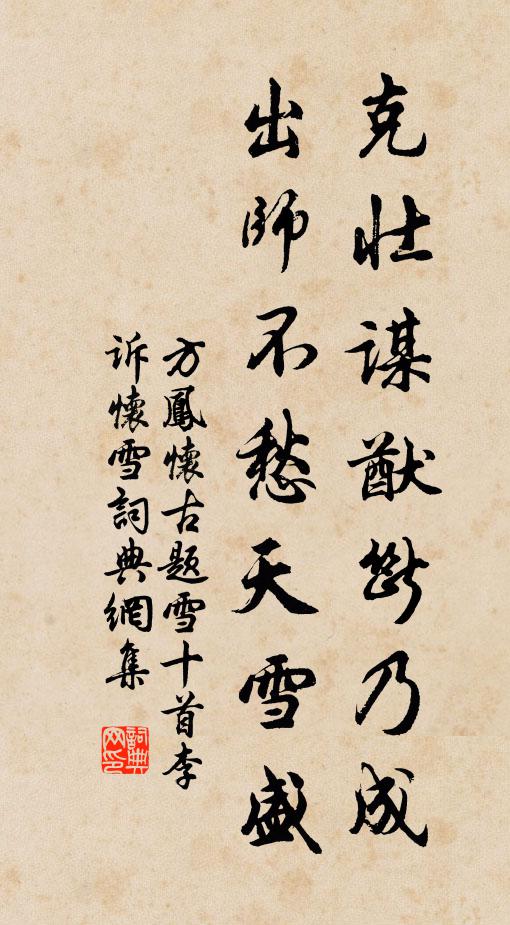 克壮謀猷斷乃成
出師不愁天雪盛
方鳳懷古題雪十首李
訴懷雪詞典網集
詞典
网印